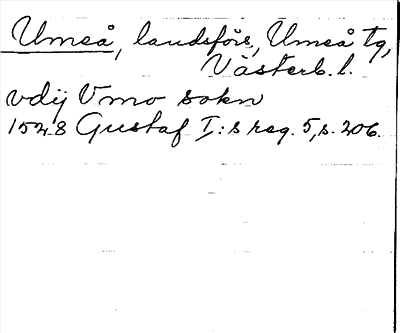 Umeå, landsförs., Umeå tg,
Västerb. l.
vdij Vmo sokn
1528 Gustaf I:s reg. 5, s. 206.